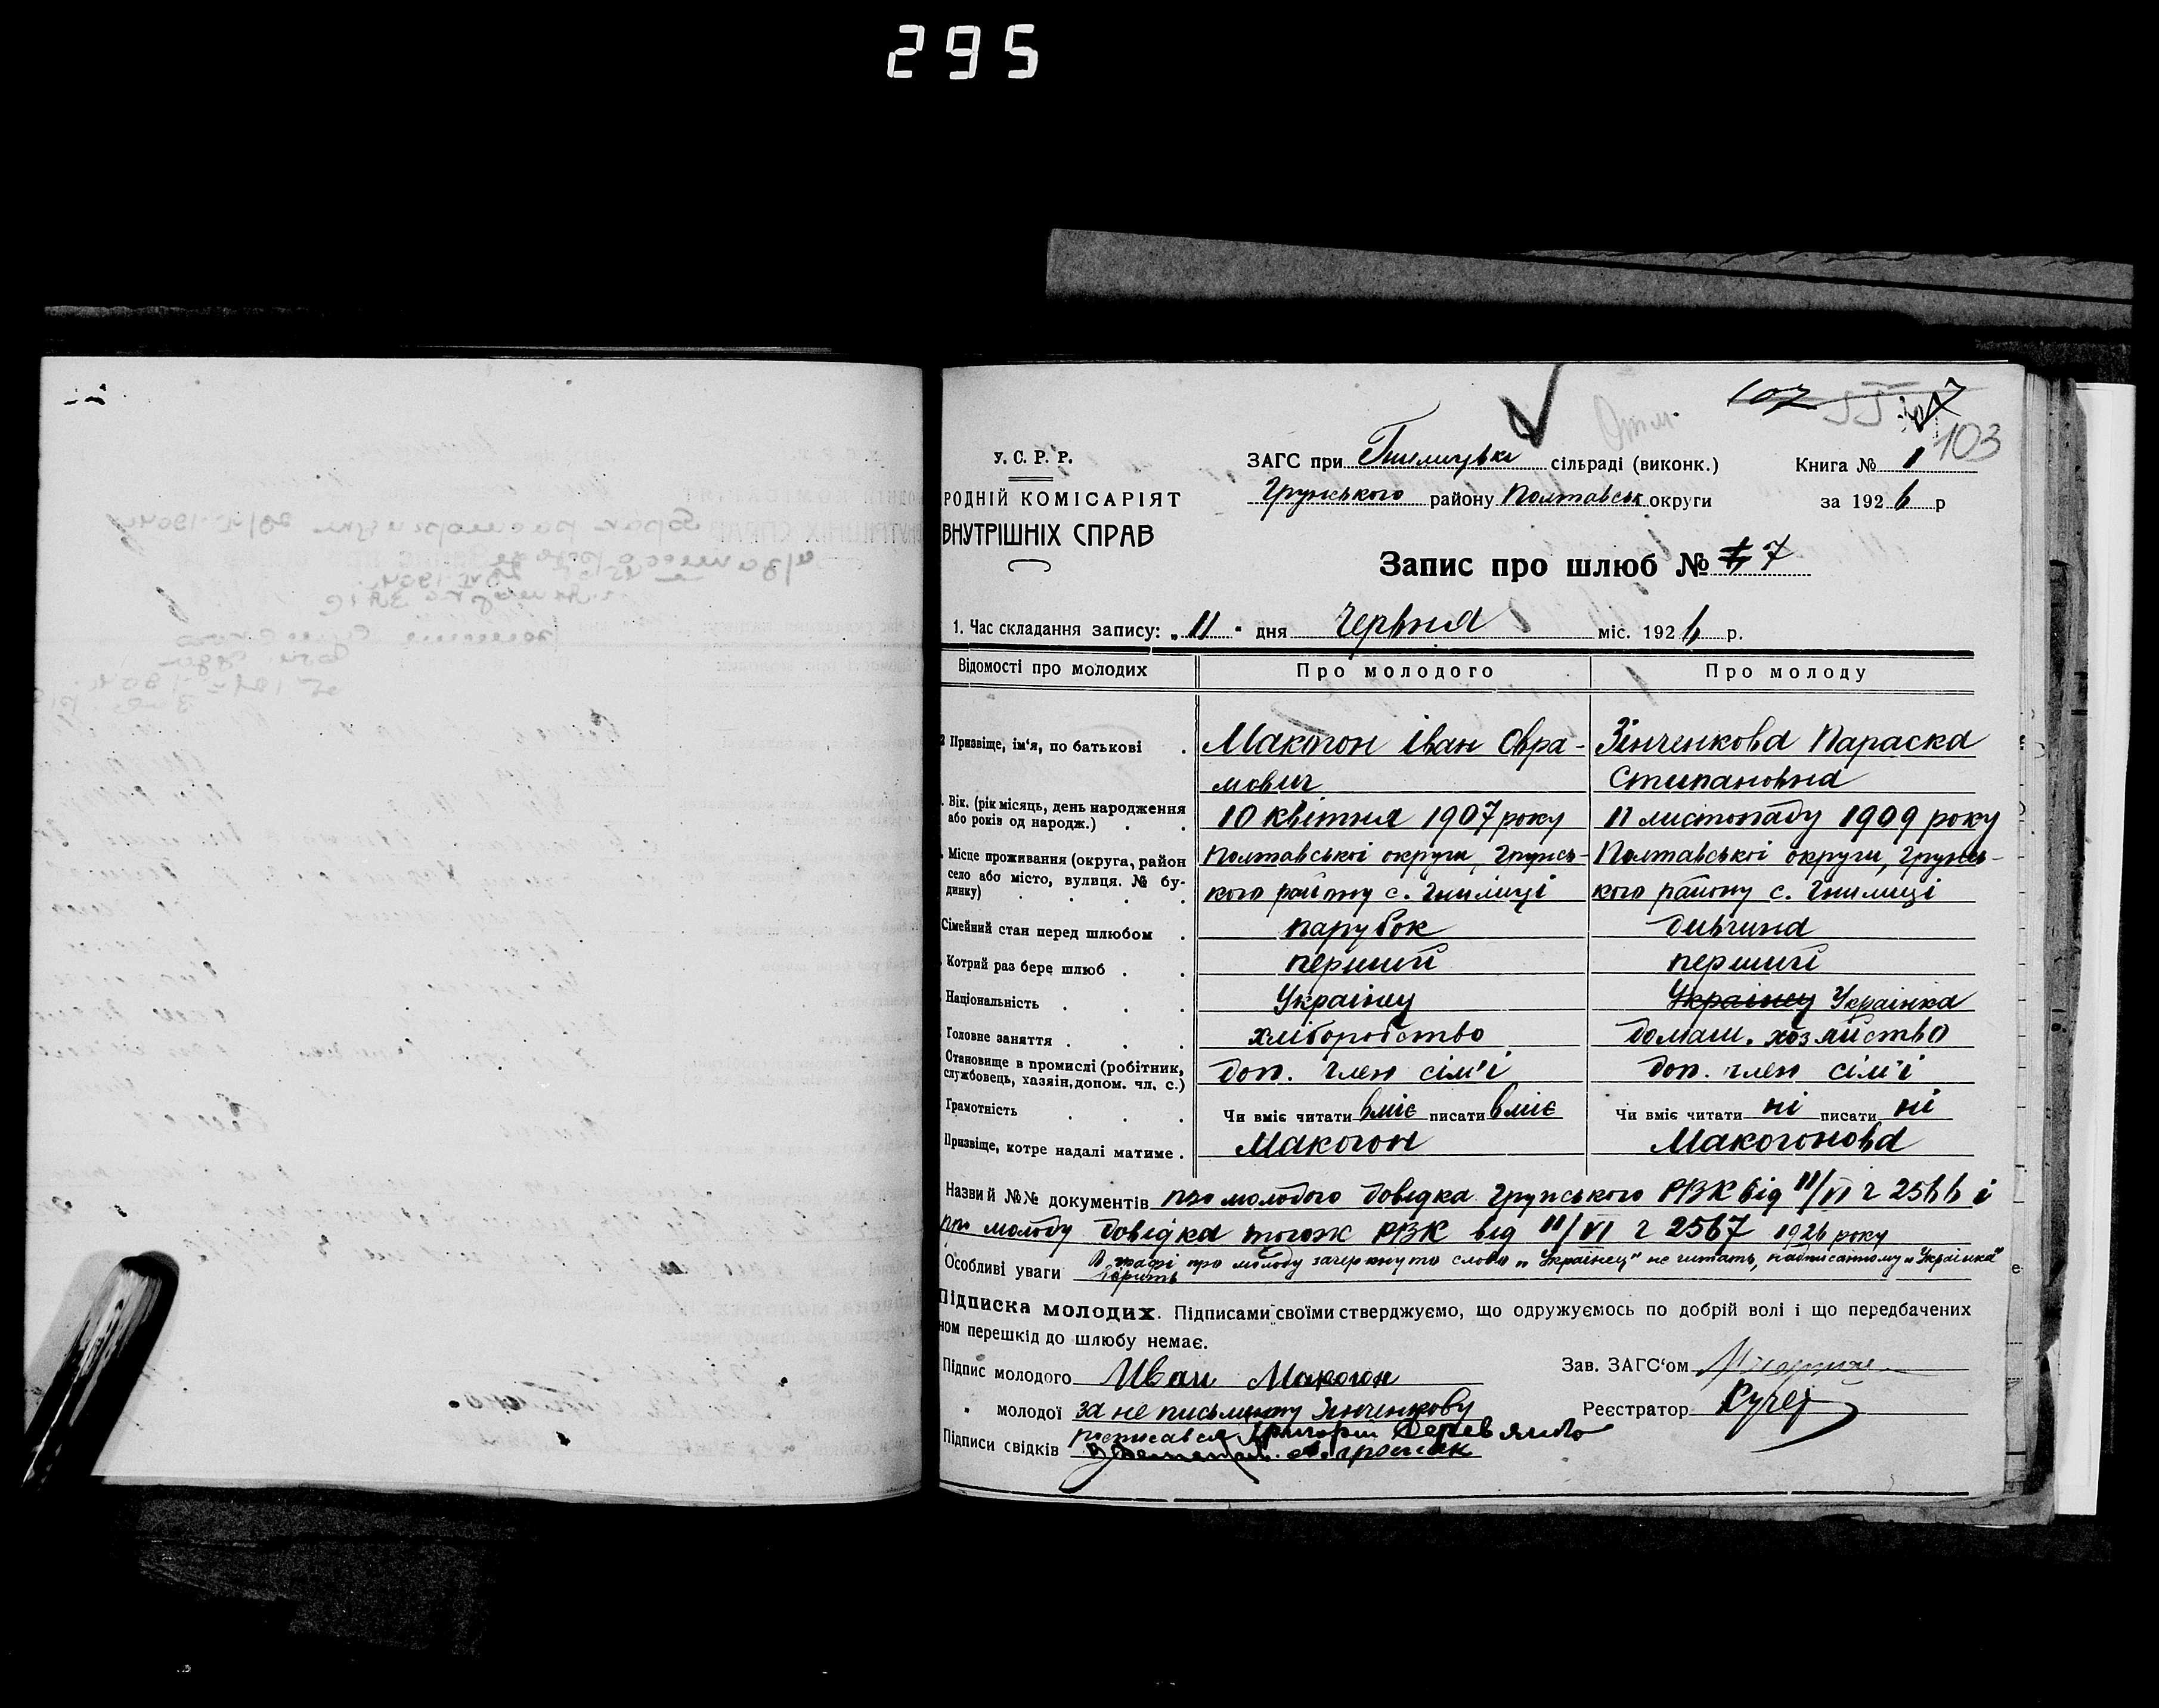 295
107 55 103
У. С. Р. Р.
РОДНІЙ КОМІСАРІЯТ
ВНУТРІШНІХ СПРАВ
ЗАГС при сільраді (виконк.) Книга № 1
Грунського району Полтавськ округи за 1926 р
Запис про шлюб № 7
1. Час складання запису: „11" дня червня міс. 1926 р.
Відомості про молодих Про молодого Про молоду
2 Призвіще, ім'я, по батькові Макогон Іван Овра- Зінченкова Параска
мович Степановна
Вік. (рік місяць, день народження або років од народж.) 10 квітня 1907 року 11 листопаду 1909 року
Місце проживання (округа, район Полтавської округи, Грунсь- Полтавської округи, Грунсь-
село або місто, вулиця. № бу-
динку) кого району с. Гнилиці кого району с. Гнилиці
Сімейний стан перед шлюбом парубок дивчина
Котрий раз бере шлюб перший перший
Національність Українец Украінец Украінка
Головне заняття хліборобство домаш. хозяйство
Становище в промислі (робітник,
службовець, хазяін, допом. чл. с.) доп. член сім'і доп. член сім'і
Грамотність Чи вміє читати вміє писати вміє Чи вміє читати ні писати ні
Призвіще, котре надалі матиме Макогон Макогонова
Назви й №№ документів про молодого довідка Грунського РВК від 11/VI ч 2566 і
про молоду довідка тогож РВК від 11/VI ч 2567 1926 року
Особливі уваги В графі про молоду зачеркнуто слово „Українец" не читать, надписанному „Українка"
вірить
Підписка молодих. Підписами своїми стверджуємо, що одружуємось по добрій волі і що передбачених
ном перешкід до шлюбу немає.
Підпис молодого Иван Макогон Зав. ЗАГС'ом
" молодої за не письменну Зінченкову Реєстратор Кучер
росписався Григорій Деревянко
Підписи свідків